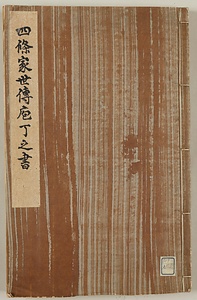 四條家世傳庖丁之書